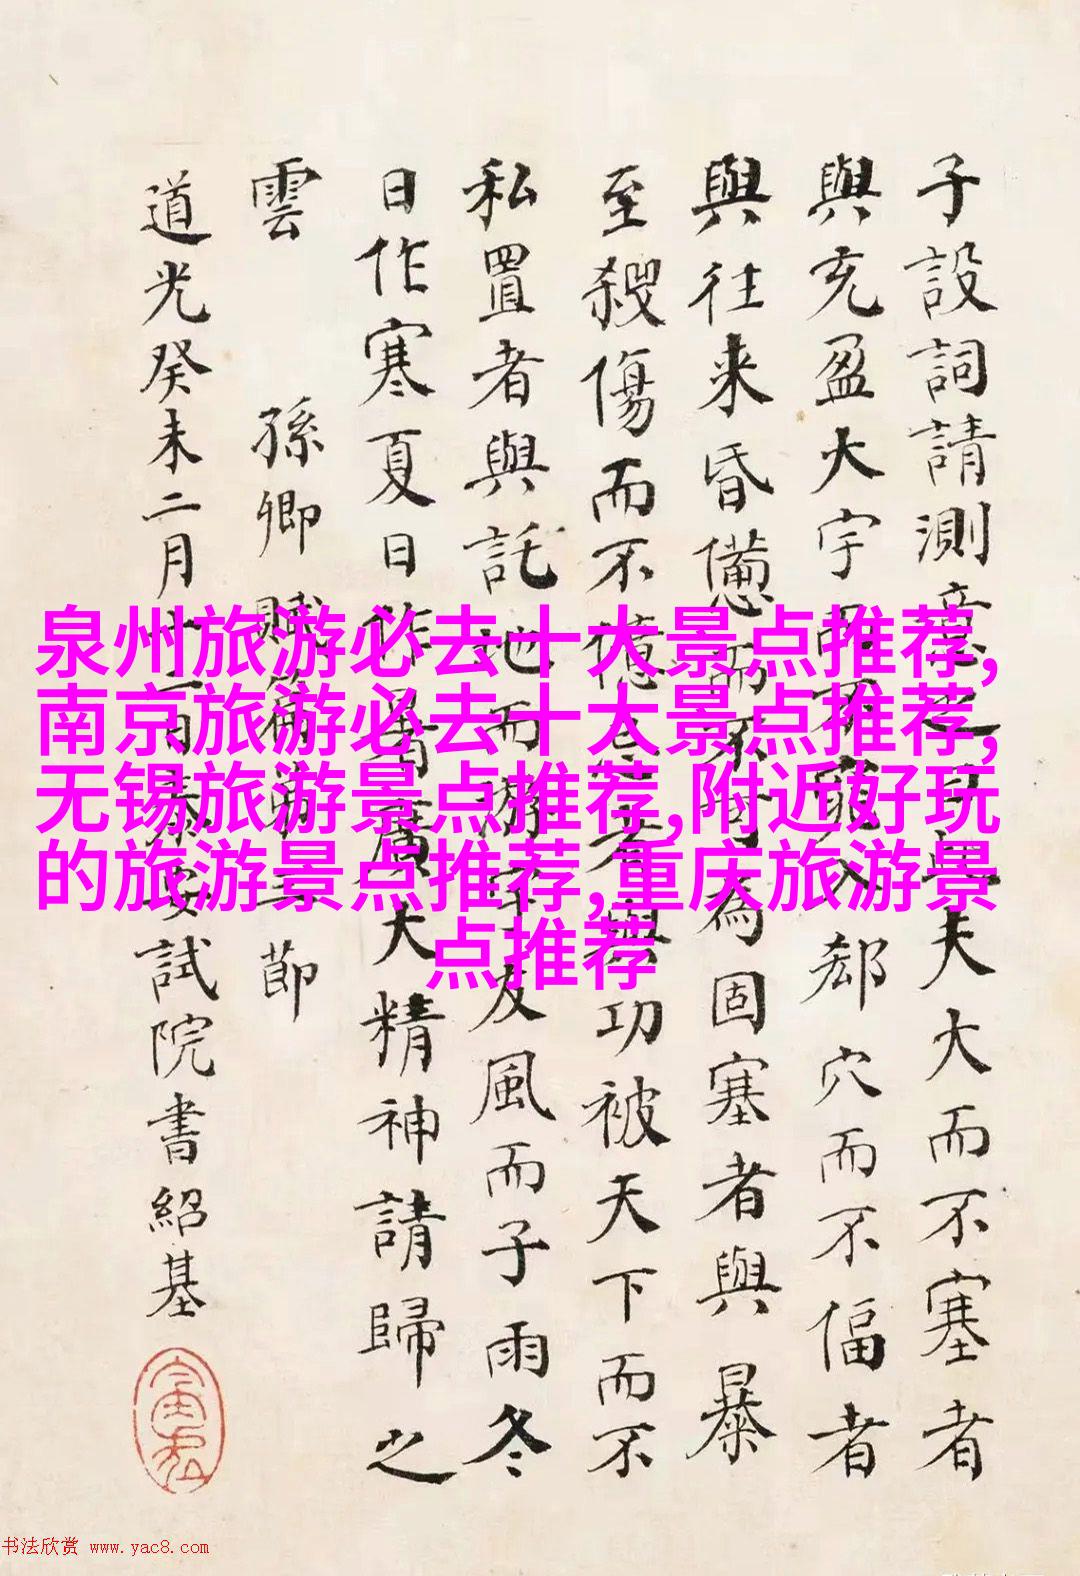 子設詞請測意之曰夫大而不塞者
與充盈大宇而不窕入郄穴而不偪者
與往来昏憊而不可為固塞者與暴
至殺傷而不億忌者與功被天下而不
私置者與託地而游宇友風而子雨冬
日作寒夏日作暑廣大精神請歸之
雲 孫卿賦篇節
道光癸未二月十一日泰安試院書紹基
泉州旅游必去十大景点推荐,
南京旅游必去十大景点推荐,
无锡旅游景点推荐,附近好玩
的旅游景点推荐,重庆旅游景
点推荐
书法欣赏 www.yac8.com